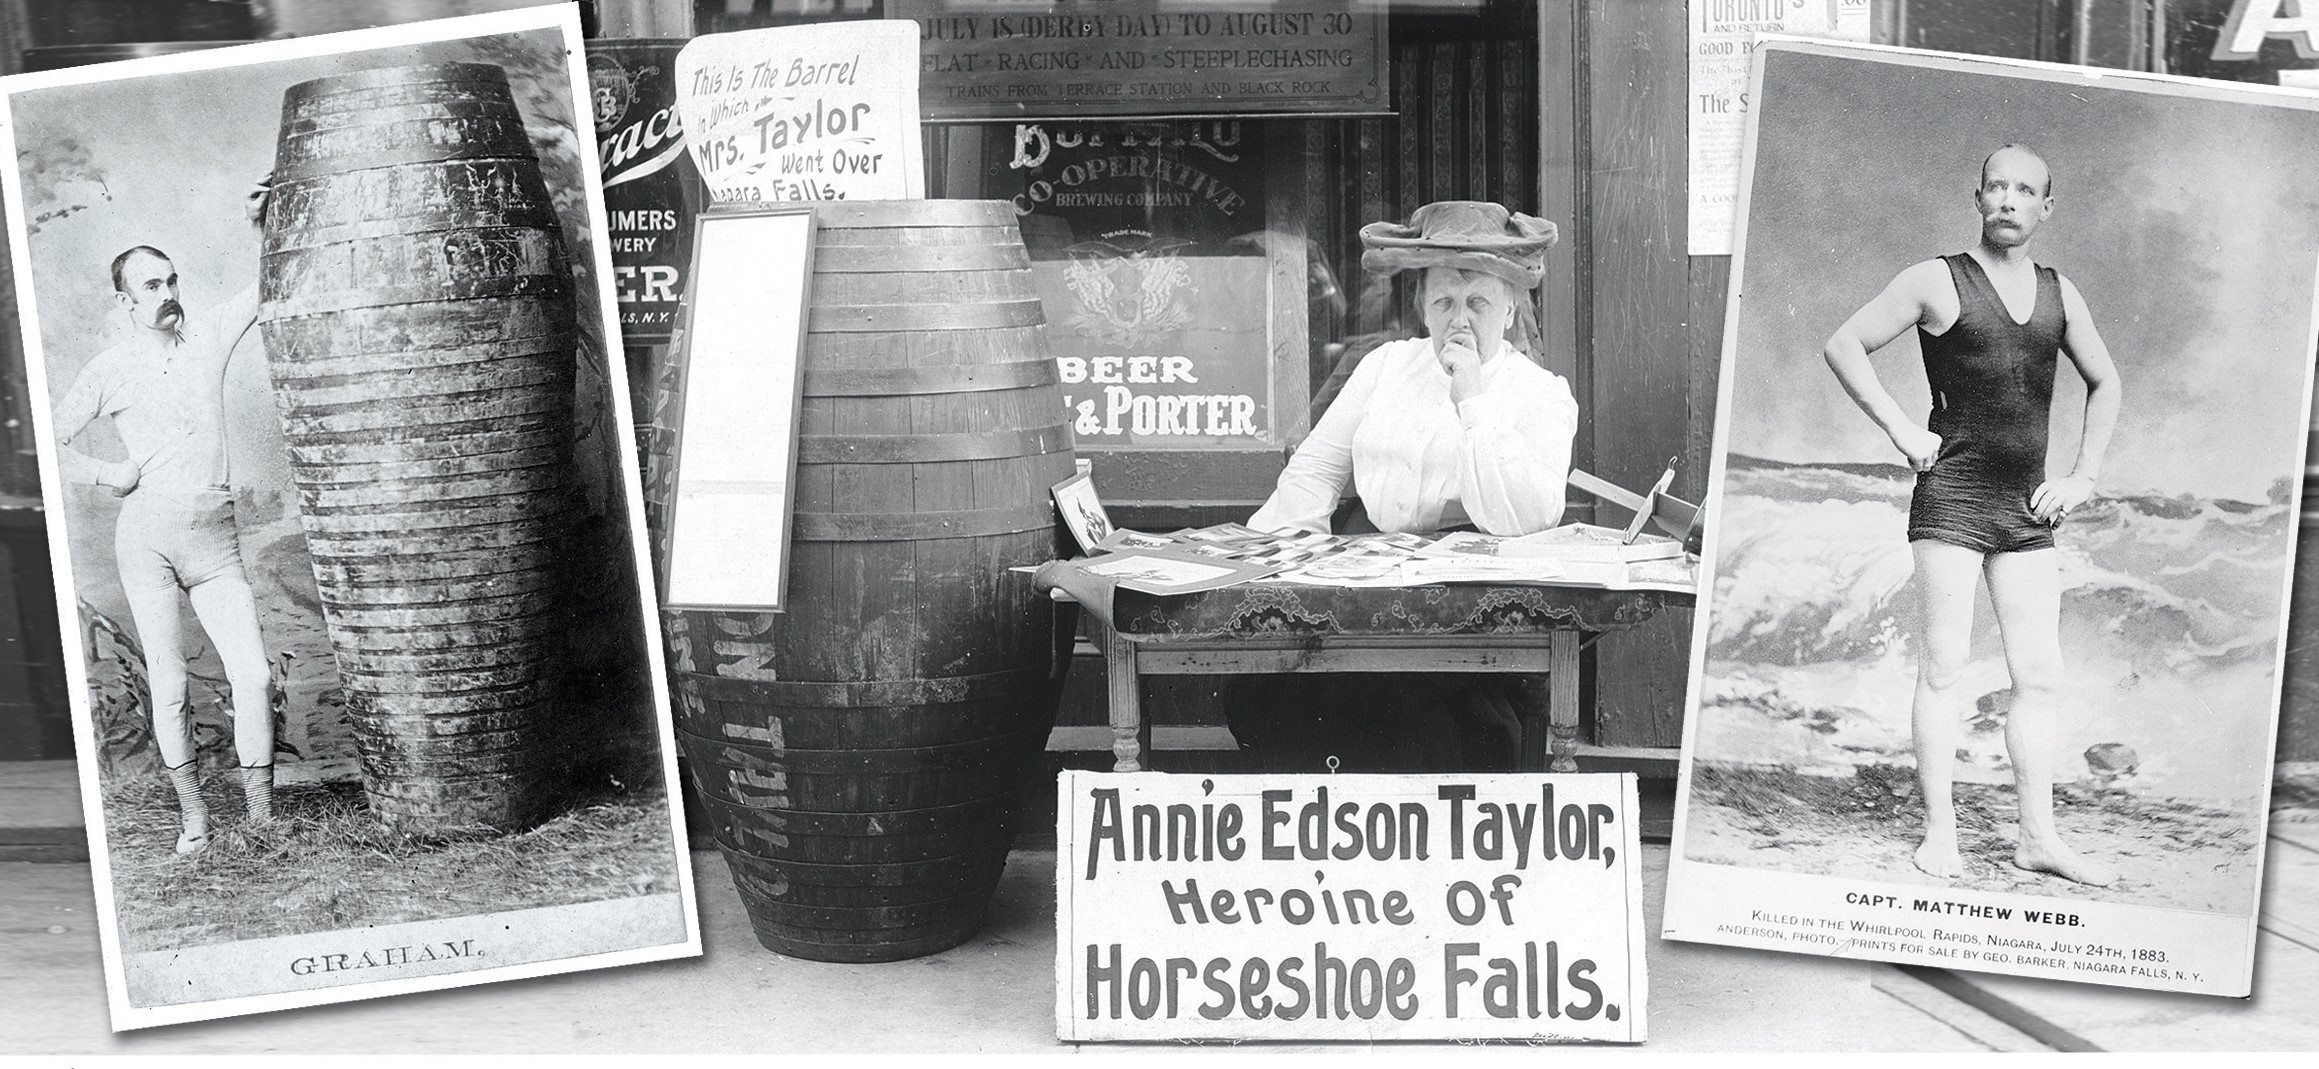 GRAHAM.
UMERS
WERY
ER.
LS, N.Y.
This Is The Barrel
in Which the
Mrs. Taylor
Went Over
Niagara Falls.
JULY 18 (DERBY DAY) TO AUGUST 30
FLAT RACING AND STEEPLECHASING
TRAINS FROM TERRACE STATION AND BLACK ROCK
BUFFALO
CO-OPERATIVE
BREWING COMPANY
TRADE MARK
BEER
& PORTER
Annie Edson Taylor,
Heroine Of
Horseshoe Falls.
TORONTO'S
AND RETURN
GOOD
The S
CAPT. MATTHEW WEBB.
KILLED IN THE WHIRLPOOL RAPIDS, NIAGARA, JULY 24TH, 1883.
ANDERSON, PHOTO. PRINTS FOR SALE BY GEO. BARKER, NIAGARA FALLS, N. Y.